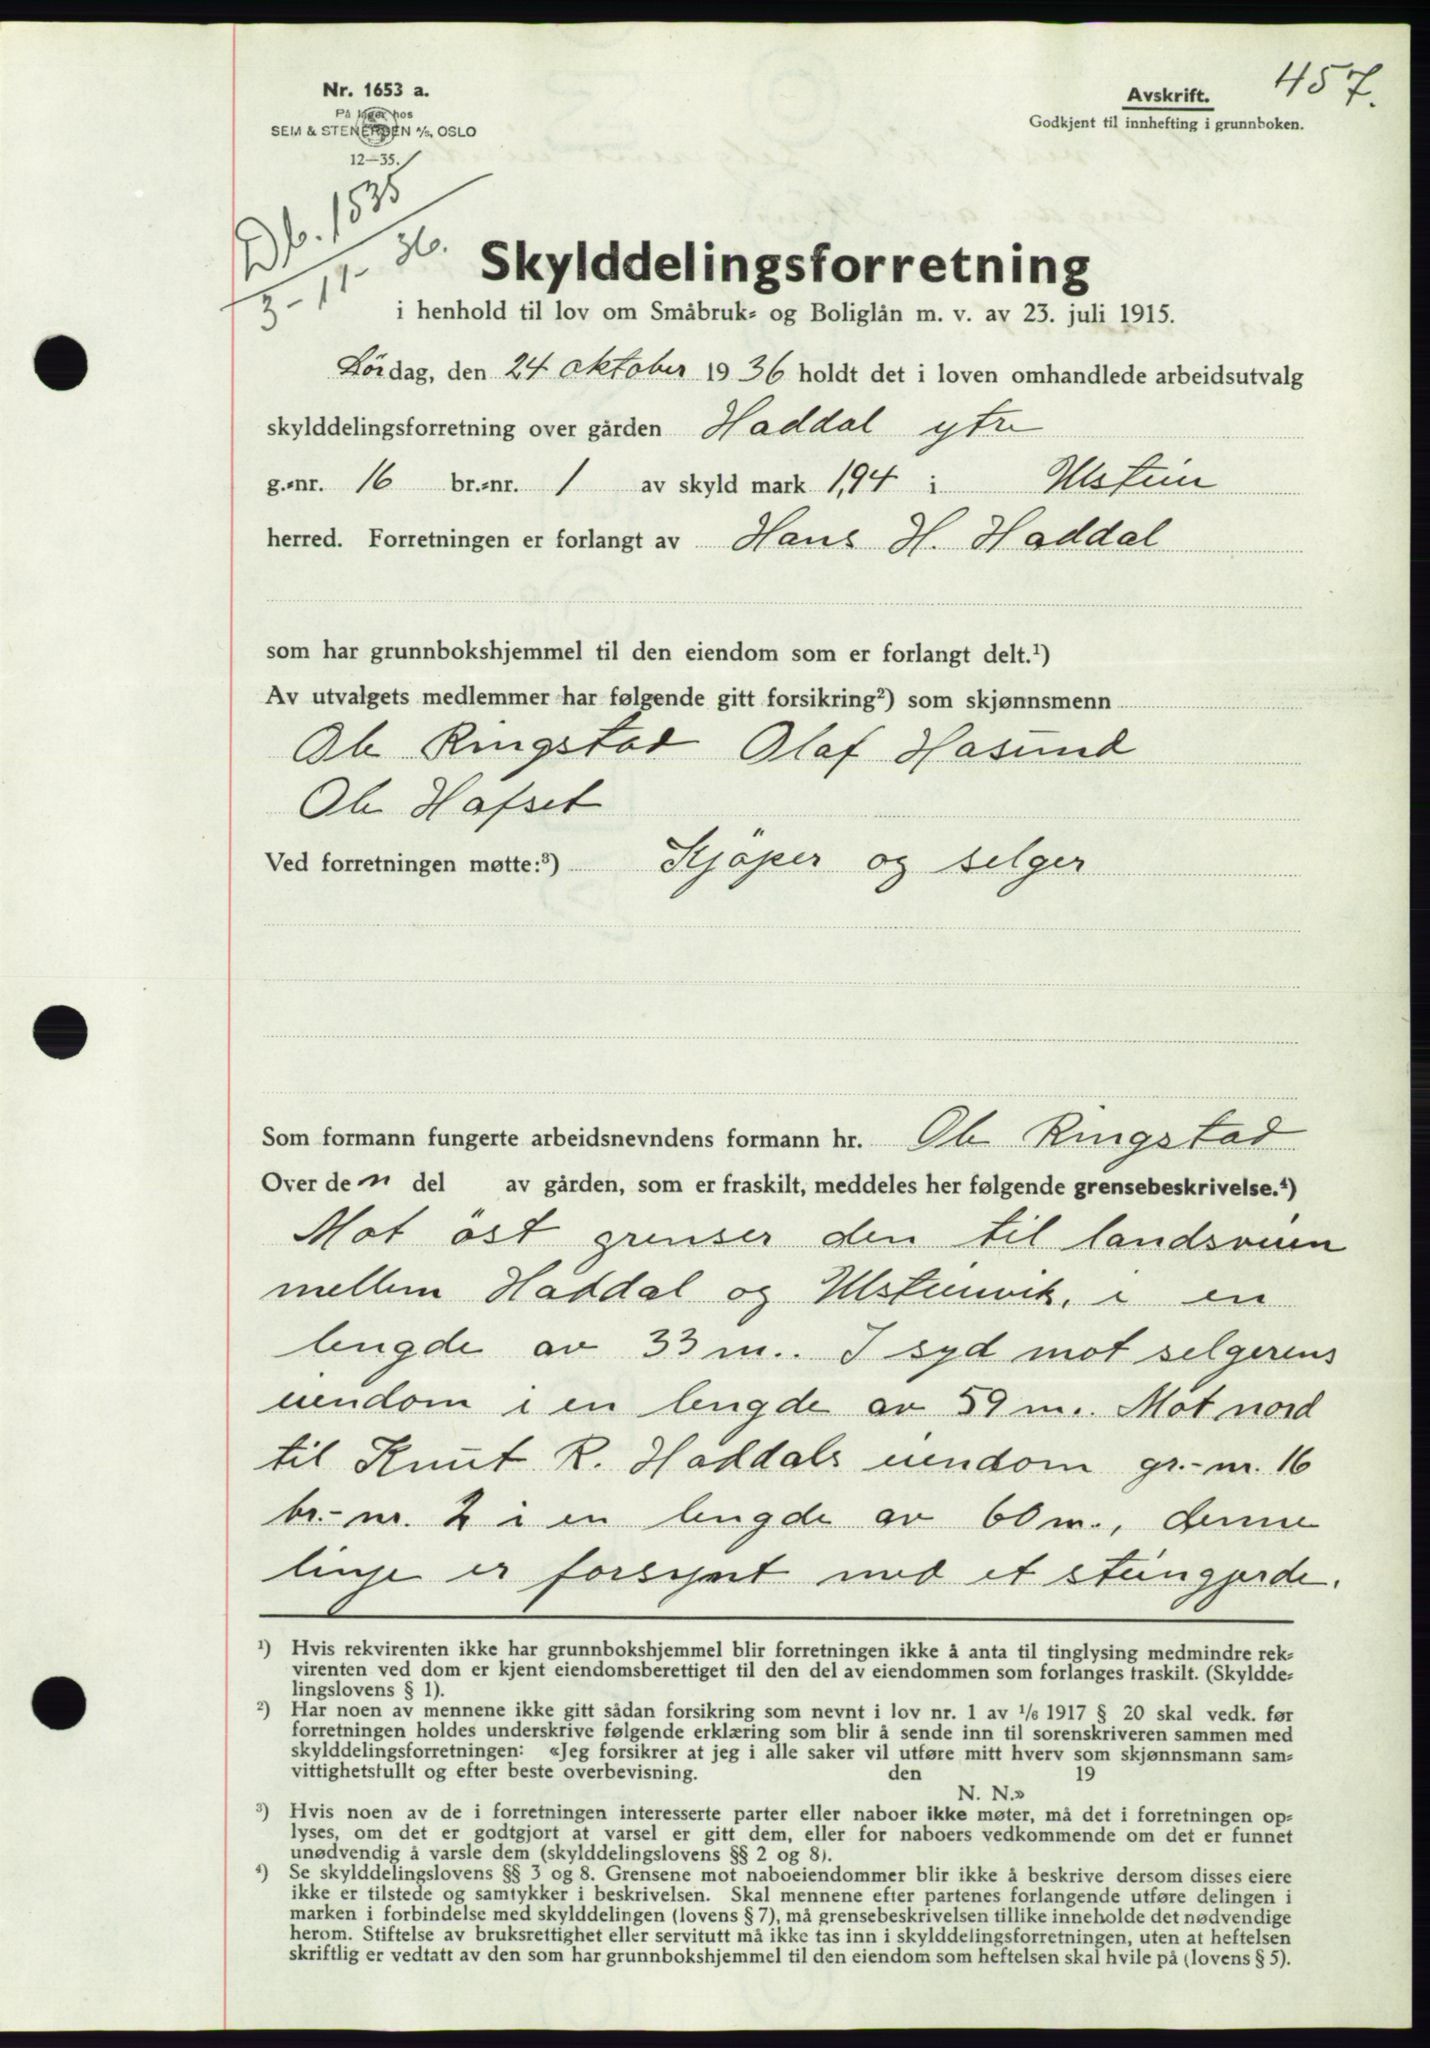 457.
Nr. 1653 a.
På lager hos
SEM & STENERSEN A/S, OSLO
12—35.
Avskrift.
Godkjent til innhefting i grunnboken.
Db. 1535
3-11-36.
Skylddelingsforretning
i henhold til lov om Småbruk= og Boliglån m. v. av 23. juli 1915.
Lördag, den 24 oktober 1936 holdt det i loven omhandlede arbeidsutvalg
skylddelingsforretning over gården Haddal ytre
g.=nr. 16 br.=nr. 1 av skyld mark 1,94 i Ulstein
herred. Forretningen er forlangt av Hans H. Haddal
som har grunnbokshjemmel til den eiendom som er forlangt delt.¹)
Av utvalgets medlemmer har følgende gitt forsikring²) som skjønnsmenn
Ole Ringstad Olaf Hasund
Ole Hafset
Ved forretningen møtte:³) Kjöper og selger
Som formann fungerte arbeidsnevndens formann hr. Ole Ringstad
Over den del av gården, som er fraskilt, meddeles her følgende grensebeskrivelse.⁴)
Mot öst grenser den til landsveien
mellem Haddal og Ulsteinvik, i en
lengde av 33 m.. I syd mot selgerens
eiendom i en lengde av 59 m.. Mot nord
til Knut R. Haddals eiendom gr.-nr. 16
br.-nr. 2 i en lengde av 60 m., denne
linje er forsynt med et steingjerde.
¹) Hvis rekvirenten ikke har grunnbokshjemmel blir forretningen ikke å anta til tinglysing medmindre rek=
virenten ved dom er kjent eiendomsberettiget til den del av eiendommen som forlanges fraskilt. (Skyldde=
lingslovens § 1).
²) Har noen av mennene ikke gitt sådan forsikring som nevnt i lov nr. 1 av 1/6 1917 § 20 skal vedk. før
forretningen holdes underskrive følgende erklæring som blir å sende inn til sorenskriveren sammen med
skylddelingsforretningen: «Jeg forsikrer at jeg i alle saker vil utføre mitt hverv som skjønnsmann sam=
vittighetsfullt og efter beste overbevisning. den 19
N. N.»
³) Hvis noen av de i forretningen interesserte parter eller naboer ikke møter, må det i forretningen op=
lyses, om det er godtgjort at varsel er gitt dem, eller for naboers vedkommende om det er funnet
unødvendig å varsle dem (skylddelingslovens §§ 2 og 8).
⁴) Se skylddelingslovens §§ 3 og 8. Grensene mot naboeiendommer blir ikke å beskrive dersom disses eiere
ikke er tilstede og samtykker i beskrivelsen. Skal mennene efter partenes forlangende utføre delingen i
marken i forbindelse med skylddelingen (lovens § 7), må grensebeskrivelsen tillike inneholde det nødvendige
herom. Stiftelse av bruksrettighet eller servitutt må ikke tas inn i skylddelingsforretningen, uten at heftelsen
skriftlig er vedtatt av den som har grunnbokshjemmel til den eiendom som heftelsen skal hvile på (lovens § 5).